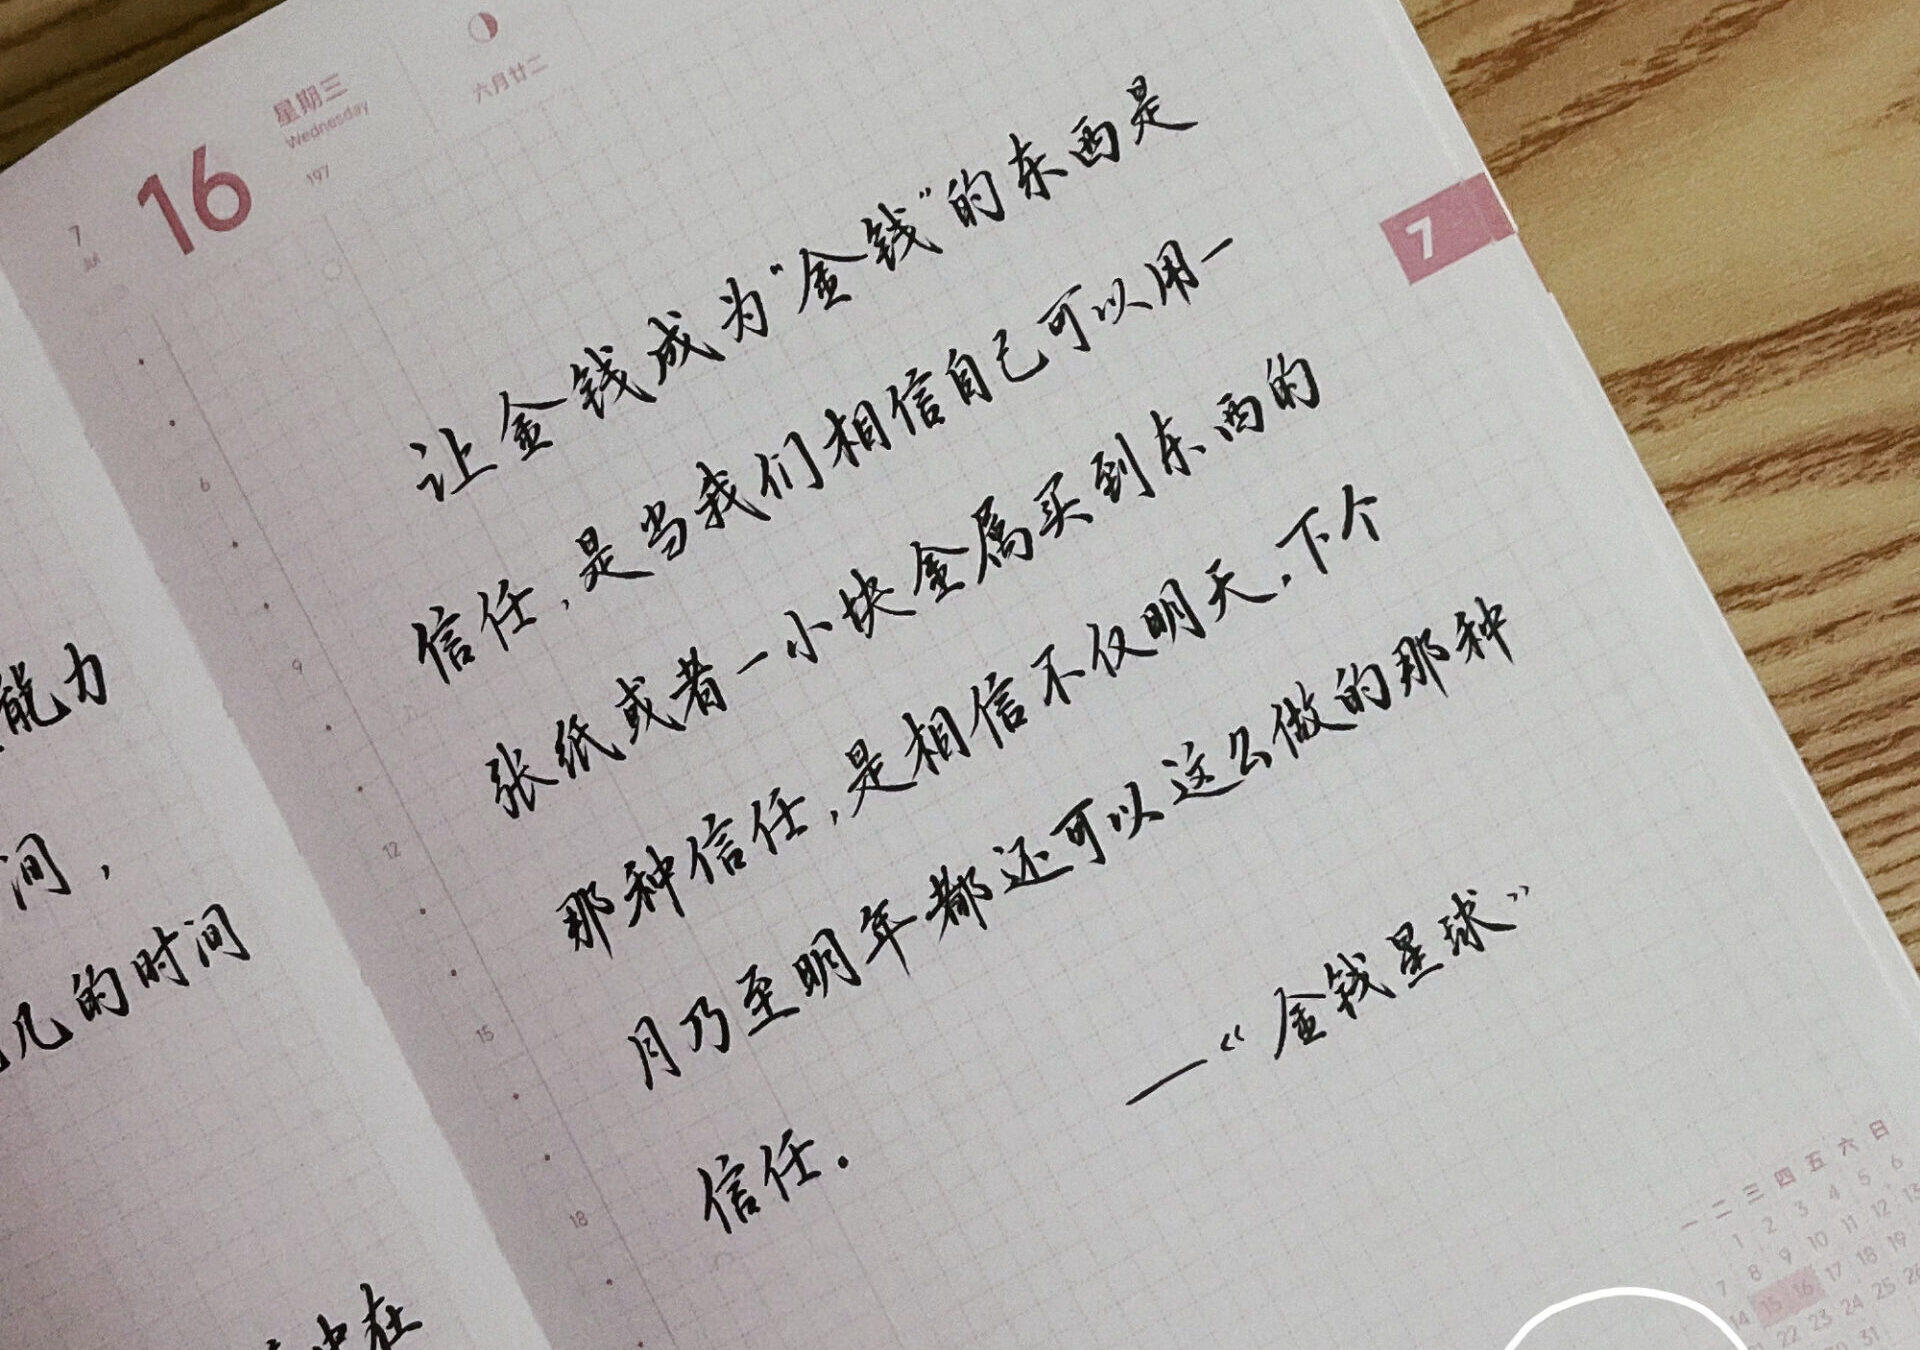 星期三
Wednesday
六月廿二
7
Jul
16
197
让金钱成为“金钱”的东西是
信任,是当我们相信自己可以用一
张纸或者一小块金属买到东西的
那种信任,是相信不仅明天,下个
月乃至明年都还可以这么做的那种
信任.
—《金钱星球》
7
6
9
12
15
18
能力
间,
几的时间
在
一 二 三 四 五 六 日
1 2 3 4 5 6
7 8 9 10 11 12 13
14 15 16 17 18 19
22 23 24 25 26
31